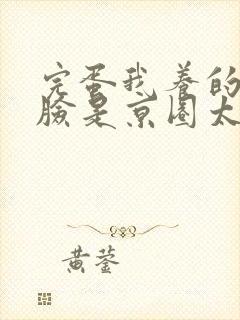 完蛋我养的
脸是京圈太
黄蓥